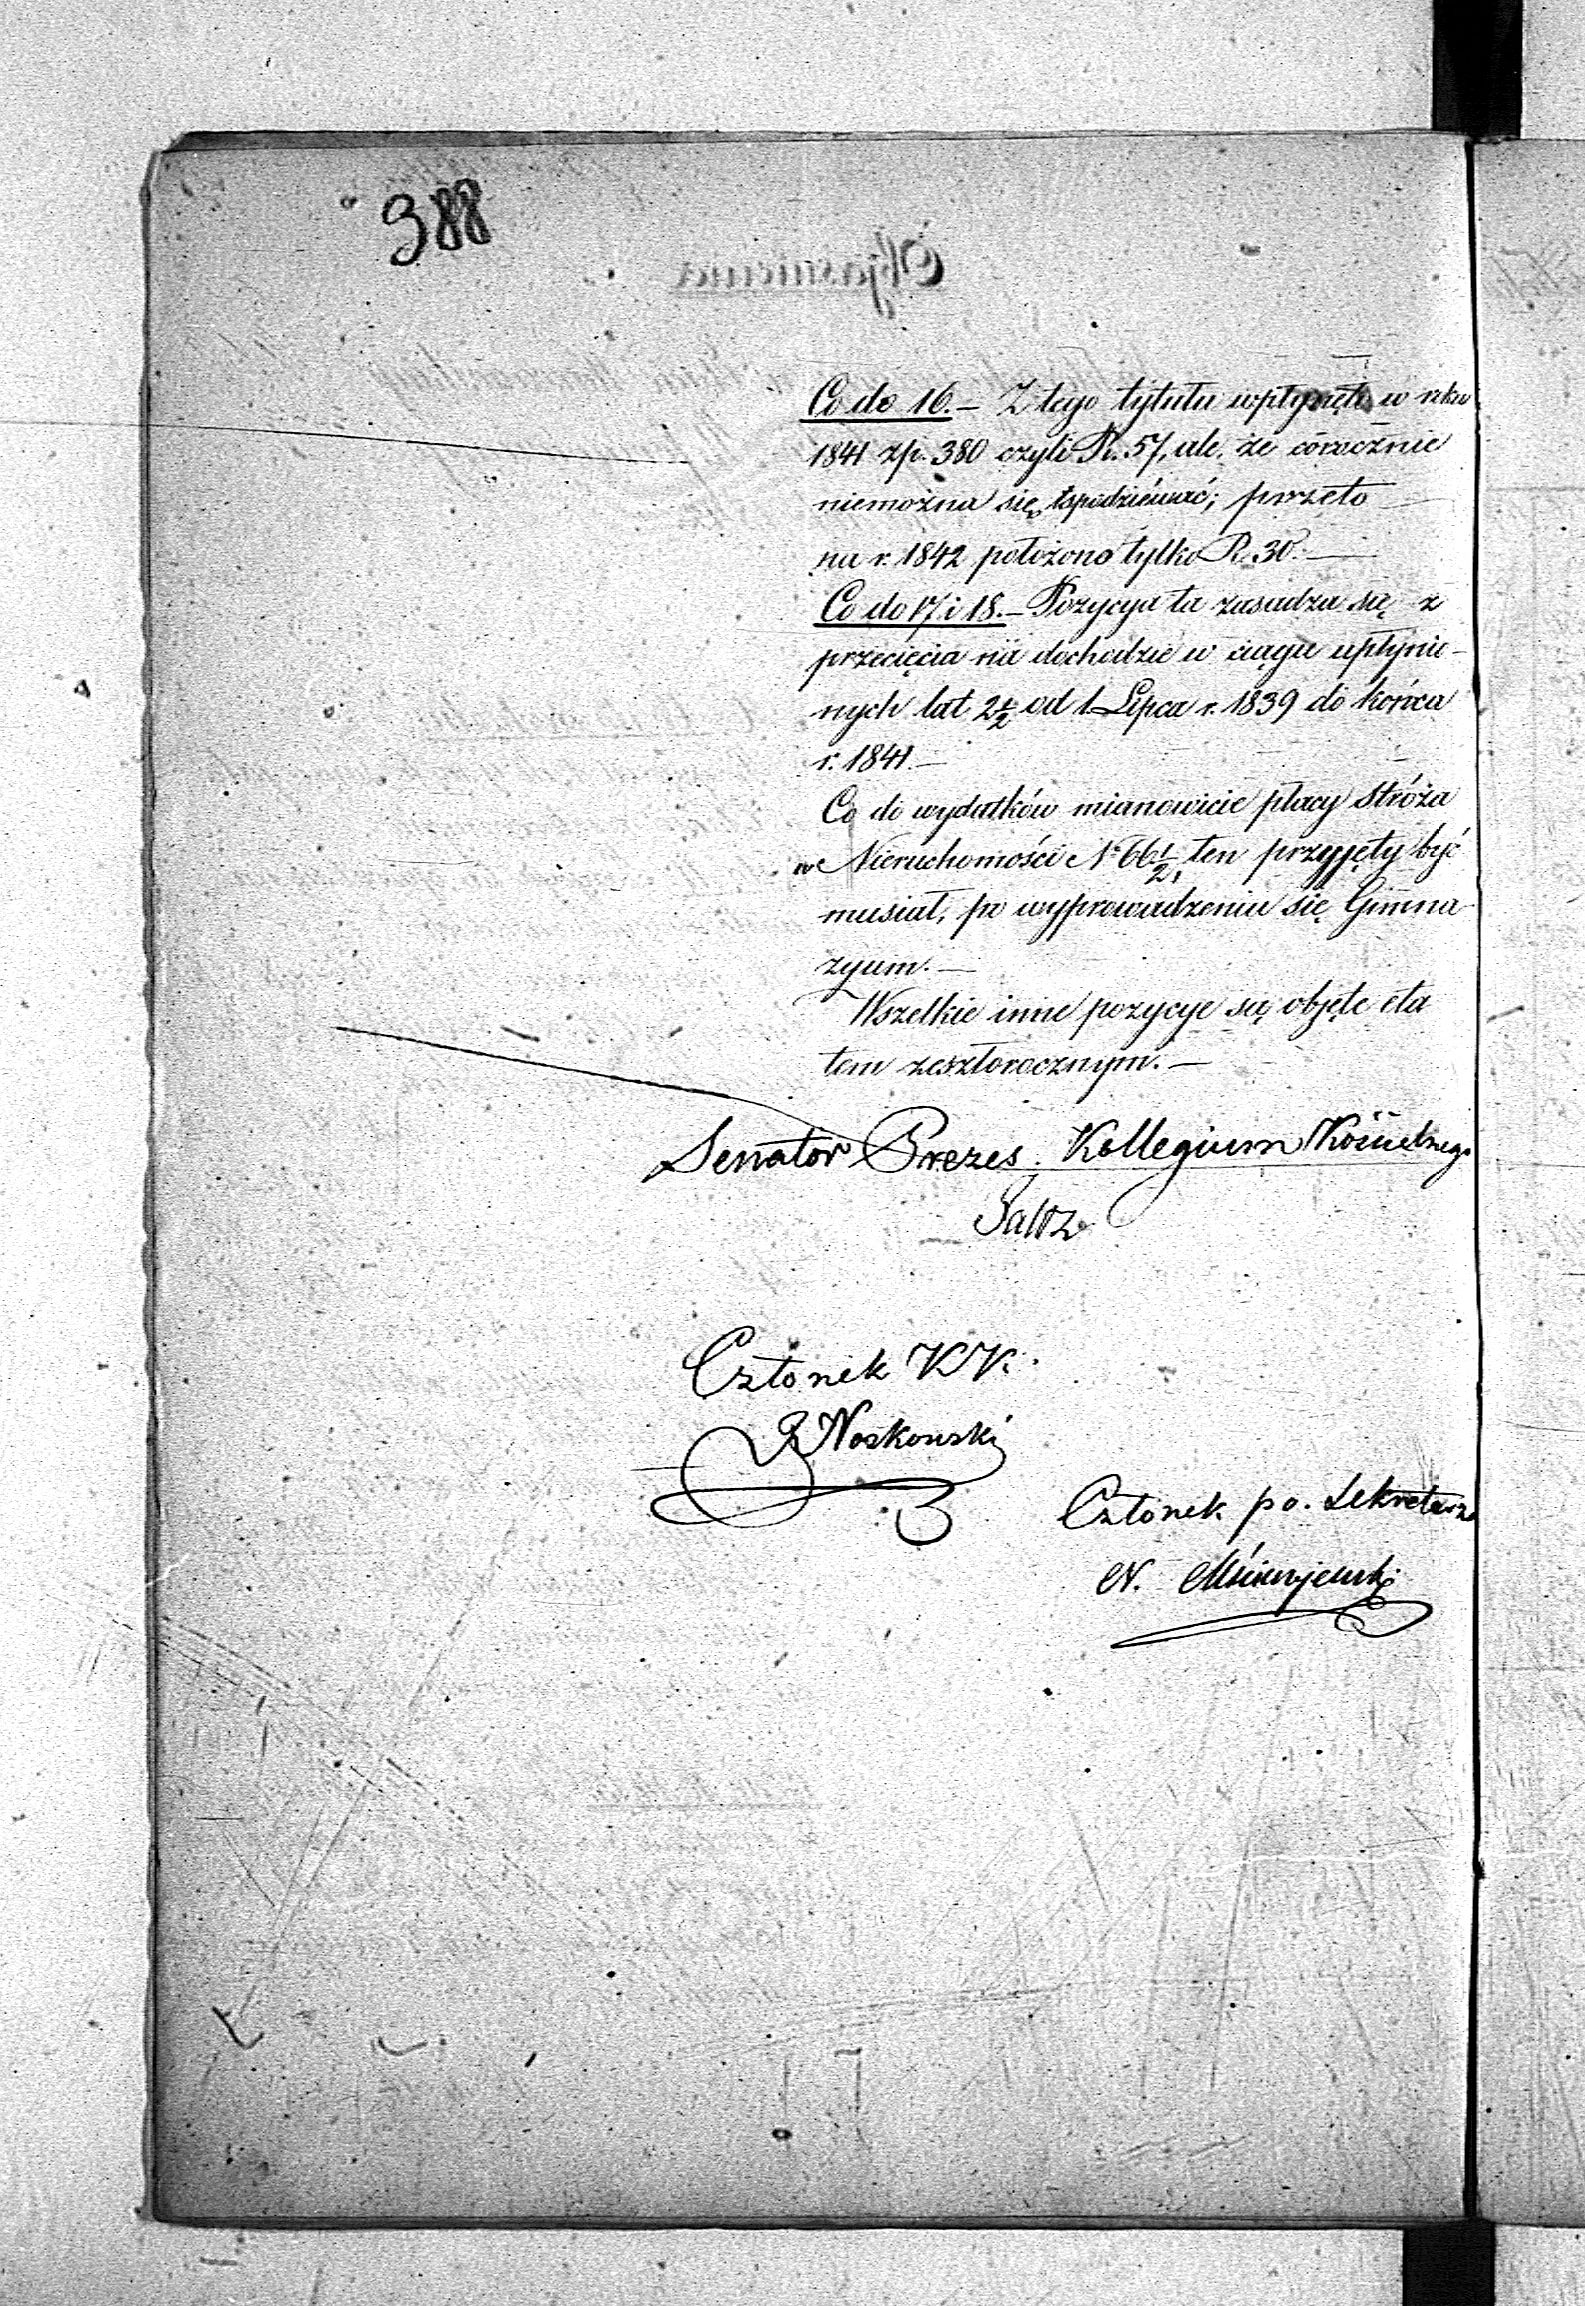 388
Objasnienia
Co do 16. – Z tego tytułu wpłynęło w roku
1841 zp. 380 czyli R. 57, ale, że corocznie
niemożna się spodziéwać; przeto
na r. 1842 położono tylko R. 30. –
Co do 17. i 18. – Pozycya ta zasadza się z
przecięcia na dochodzie w ciągu upłynio-
nych lat 2 1/2 od 1 Lipca r. 1839 do końca
r. 1841. –
Co do wydatków mianowicie płacy stróża
w Nieruchomości N° 66 1/2, ten przyjęty być
musiał, po wyprowadzeniu się Gimna
zyum. –
Wszelkie inne pozycye są objęte eta
tem zeszłorocznym. –
Senator Prezes Kollegium Kościelnego
Członek KK.
Noskowski
Członek p.o. Sekretarza
N.